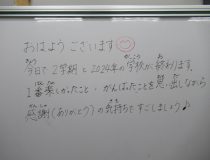 おはようございます
今日で2学期と2024年の学校が終わります。
1番楽しかったこと・がんばったことを思い出しながら
感謝(ありがとう)の気持ちですごしましょう♪